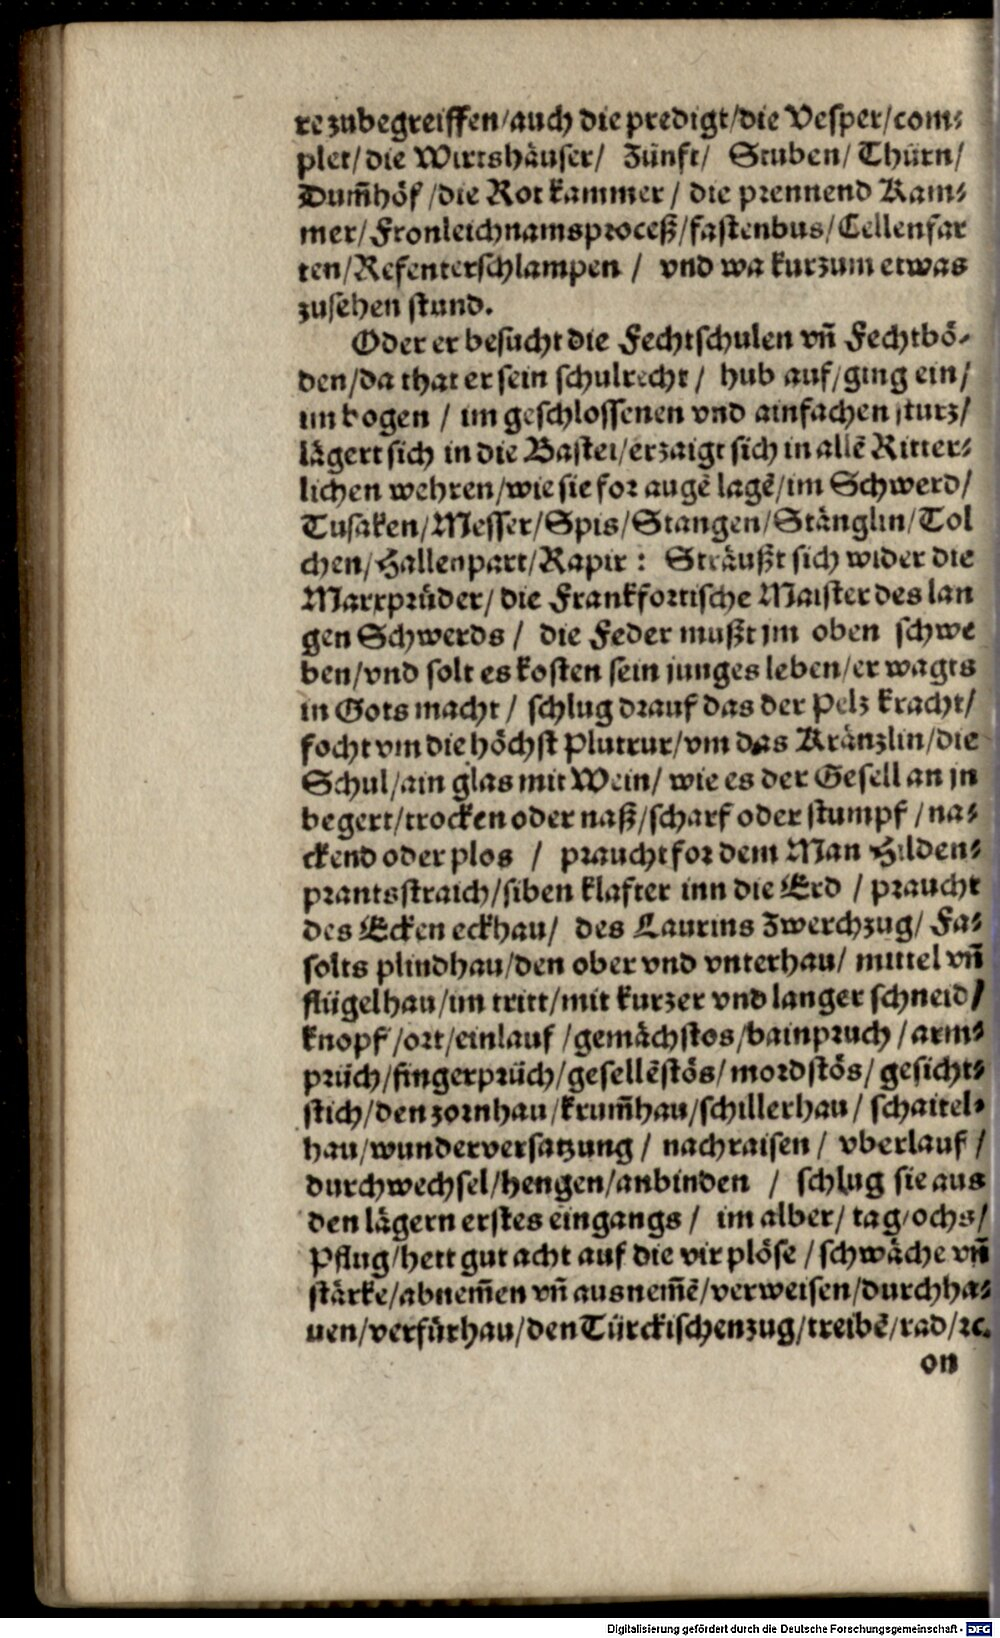 re zubegreiffen/auch die predigt/die Vesper/com⸗
plet/die Wirtshäuser/ Zünft/ Stuben/ Thürn/
Dum̃höf/die Rot kammer/ die prennend Kam⸗
mer/Fronleichnamsproceß/fastenbus/Cellenfar
ten/Refenterschlampen / vnd wa kurzum etwas
zusehen stund.
Oder er besucht die Fechtschulen vñ Fechtbö⸗
den/da that er sein schulrecht / hub auf/ging ein/
im bogen / im geschlossenen vnd ainfachen sturz/
lägert sich in die Bastei/erzaigt sich in allẽ Ritter⸗
lichen wehren/wie sie for augẽ lagẽ/im Schwerd/
Tusaken/Messer/Spis/Stangen/Stänglin/Tol
chen/Hallenpart/Rapir : Sträußt sich wider die
Marxprüder/ die Frankfortische Maister des lan
gen Schwerds / die Feder mußt jm oben schwe
ben/vnd solt es kosten sein junges leben/er wagts
in Gots macht / schlug drauf das der Pelz kracht/
focht vm die höchst Plutrur/vm das Kränzlin/die
Schul/ain glas mit Wein/ wie es der Gesell an jn
begert/trocken oder naß/scharf oder stumpf / na⸗
ckend oder plos / praucht for dem Man Hilden⸗
prantsstraich/siben klafter inn die Erd / praucht
des Ecken eckhau/ des Laurins Zwerchzug/ Fa⸗
solts plindhau/den ober vnd vnterhau/ mittel vñ
flügelhau/im tritt/mit kurzer vnd langer schneid/
knopf/ort/einlauf/gemächstos/bainpruch/arm⸗
prüch/fingerprüch/gesellẽstös/mordstös/gesicht⸗
stich/den zornhau/krum̃hau/schillerhau/ schaitel⸗
hau/wunderversatzung/ nachraisen/ vberlauf/
durchwechsel/hengen/anbinden / schlug sie aus
den lägern erstes eingangs/ im alber/ tag/ochs/
Pflug/hett gut acht auf die vir plöse/schwäche vñ
stärke/abnem̃en vñ ausnem̃ẽ/verweisen/durchha⸗
uen/verfürhau/den Türckischenzug/treibẽ/rad/ꝛc.
on
Digitalisierung gefördert durch die Deutsche Forschungsgemeinschaft - DFG